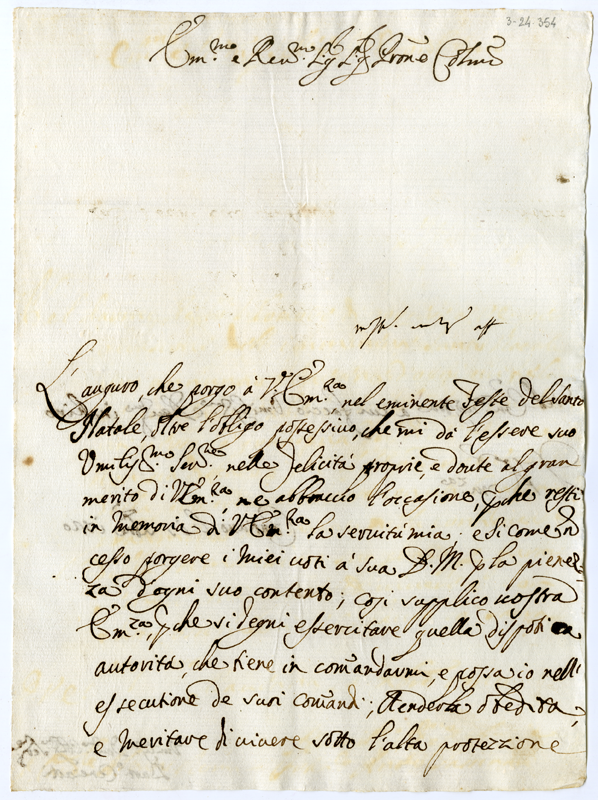 3-24-354
Em.mo e Rev.mo Sig.r Sig.r Prone Colmo
L'auguro, che porgo à V. Em.za nel eminente feste del Santo
Natale, oltre l'obligo possessivo, che mi dà l'essere suo
Umiliss.mo Ser.re nelle felicità proprie, e doute al gran
merito di V. Em.za, ne abbraccio l'occasione, p che resti
in memoria di V. Em.za la servitù mia; e si come in
cesso porgere i miei uoti à sua D. M. p la pienez-
za d'ogni suo contento; cosi supplico uostra
Em.za, p che si degni essercitare quella dispotica
autorità, che tiene in comandarmi, e possa io nell'
essecutione de suoi comandi; Renderla obedita,
e meritare di uiuere sotto l'alta protezzione